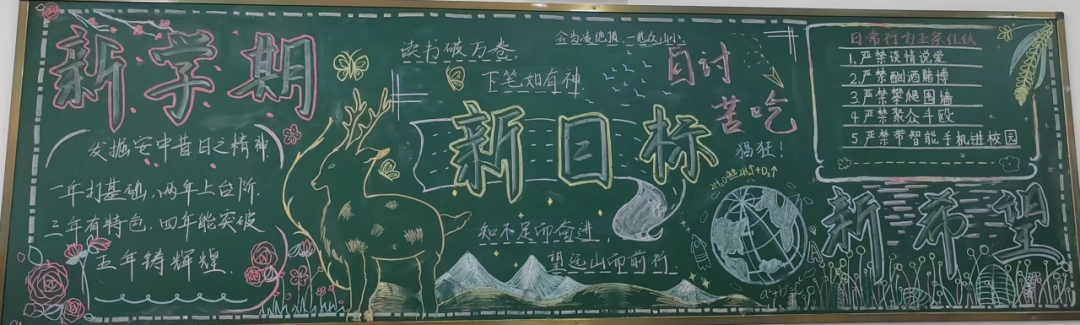 新学期
发掘安中昔日之精神
一年打基础,两年上台阶
三年有特色,四年能突破
五年铸辉煌.
读书破万卷
下笔如有神
会当凌绝顶,一览众山小.
自讨
苦吃
新目标
猖狂!
知不足而奋进,
望远山而前行
日常行为五条红线
1.严禁谈情说爱
2.严禁酗酒赌博
3.严禁攀爬围墙
4.严禁聚众斗殴
5严禁带智能手机进校园
新希望